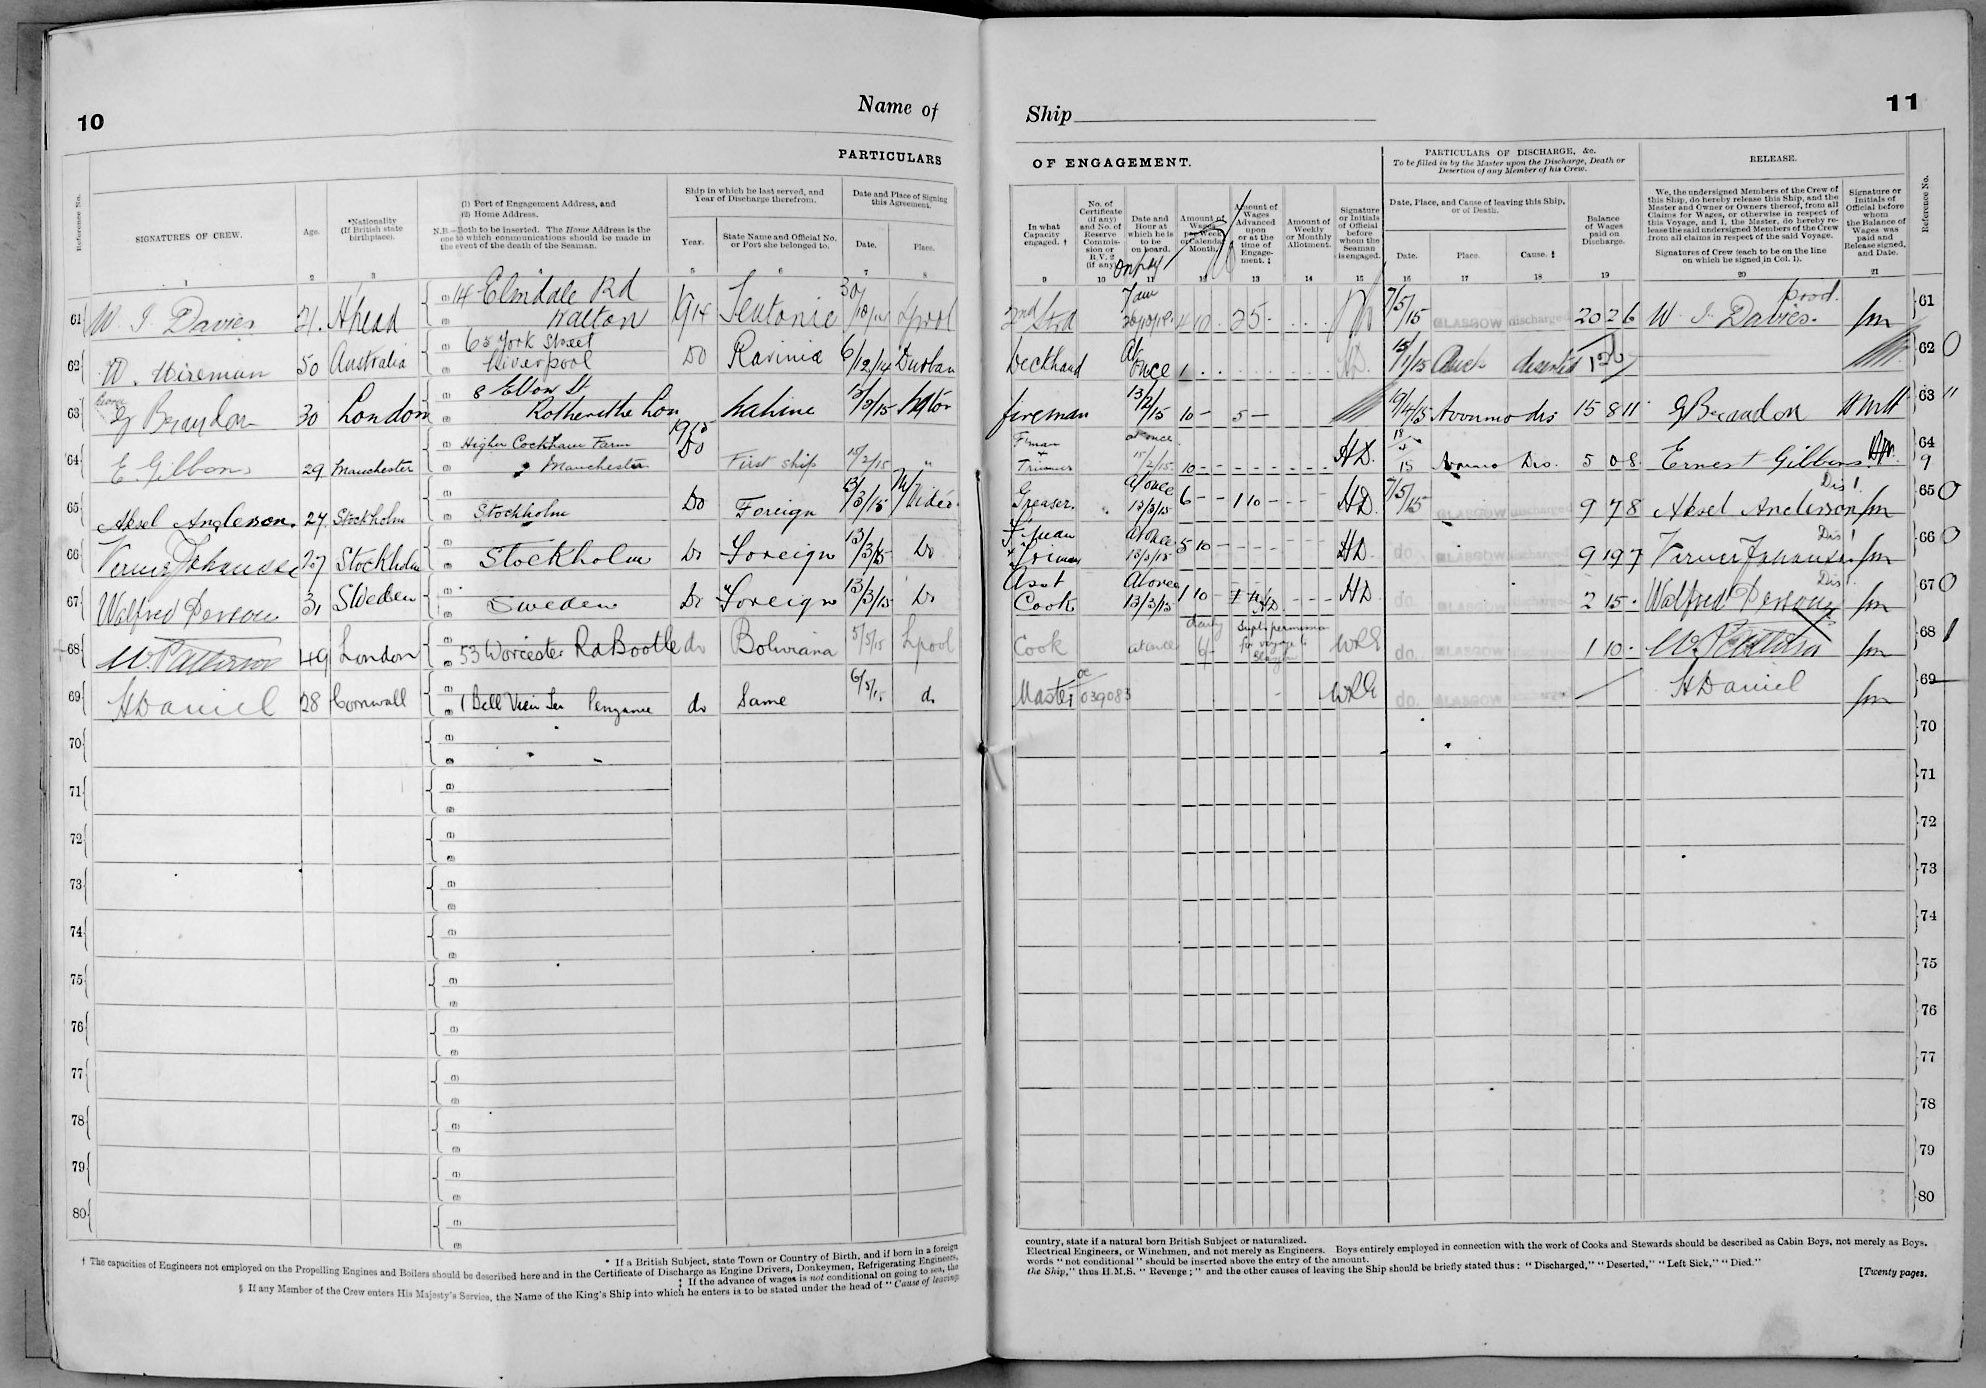 10
Name of
PARTICULARS
Reference No.
SIGNATURES OF CREW.
Age.
*Nationality (If British state birthplace).
(1) Port of Engagement Address, and
(2) Home Address.
N.B.—Both to be inserted. The Home Address is the one to which communications should be made in the event of the death of the Seaman.
Ship in which he last served, and Year of Discharge therefrom.
Year.
State Name and Official No. or Port she belonged to.
Date and Place of Signing this Agreement.
Date.
Place.
1 2 3 5 6 7 8
61 W. J. Davies 21. 14 Elmdale Rd Walton 1914 Teutonic 30/10/14 Lpool
62 W. Wireman 50 Australia 65 York Street Liverpool Do Ravinia 6/12/14 Durban
63 G Beaudon 30 London 8 Elbow St Rotherithe Lon 1915
64 E. Gibbons 29 Manchester Higher Cockham Farm Manchester Do First ship 15/2/15 "
65 Aksel Anderson. 27 Stockholm Stockholm Do Foreign 13/3/15 M/Video
66 Verner Johansson 27 Stockholm Stockholm Do Foreign 13/3/15 Do
67 Walfred Persson 31 Sweden Sweden Do Foreign 13/3/15 Do
68 W. Patterson 49 London 53 Worcester Rd Bootle do Boliviana 5/5/15 Lpool
69 H Daniel 28 Cornwall 1 Bell View Ter Penzance do Same 6/5/15 do
70
71
72
73
74
75
76
77
78
79
80
* If a British Subject, state Town or Country of Birth, and if born in a foreign
† The capacities of Engineers not employed on the Propelling Engines and Boilers should be described here and in the Certificate of Discharge as Engine Drivers, Donkeymen, Refrigerating Engineers,
‡ If the advance of wages is not conditional on going to sea, the
§ If any Member of the Crew enters His Majesty's Service, the Name of the King's Ship into which he enters is to be stated under the head of "Cause of leaving
Ship
11
OF ENGAGEMENT.
PARTICULARS OF DISCHARGE, &c.
To be filled in by the Master upon the Discharge, Death or Desertion of any Member of his Crew.
RELEASE.
In what Capacity engaged. †
No. of Certificate (if any) and No. of Reserve Commission or R.V.2 (if any)
Date and Hour at which he is to be on board.
Amount of Wages per Week or Calendar Month.
Amount of Wages Advanced upon or at the time of Engagement. ‡
Amount of Weekly or Monthly Allotment.
Signature or Initials of Official before whom the Seaman is engaged.
Date, Place, and Cause of leaving this Ship, or of Death.
Date.
Place.
Cause. §
Balance of Wages paid on Discharge.
We, the undersigned Members of the Crew of this Ship, do hereby release this Ship, and the Master and Owner or Owners thereof, from all Claims for Wages, or otherwise in respect of this Voyage, and I, the Master, do hereby release the said undersigned Members of the Crew from all claims in respect of the said Voyage.
Signatures of Crew (each to be on the line on which he signed in Col. 1).
Signature or Initials of Official before whom the Balance of Wages was paid and Release signed, and Date.
Reference No.
9 10 11 12 13 14 15 16 17 18 19 20 21
2nd Std 7 am 4 10 25 - 7/5/15 GLASGOW discharged 20 2 6 W J Davies. 61
Deckhand At once 1 H.D. deserted 62
fireman 13/2/15 10 - 5 - 9/4/15 Avonmo dis 15 8 11 G Beaudon 63
Fman + Trimmer at once 15/2/15 10 - H.D. Avonmo Dis. 5 0 8 Ernest Gibbons 64
Greaser. At once 13/3/15 6 - 1 10 - H.D. 7/5/15 GLASGOW discharged 9 7 8 Dis! Aksel Anderson 65
F.man + Trimmer At once 13/3/15 5 10 - H.D. do. GLASGOW discharged 9 19 7 Dis! Verner Johansson 66
Asst Cook At once 13/3/15 1 10 - H.D. do. GLASGOW discharged 2 15 - Dis! Walfred Persson 67
Cook at once daily 6/- WRE do. GLASGOW discharged 1 10 - W. Patterson 68
Master 039083 WRE do. GLASGOW discharged H Daniel 69
70
71
72
73
74
75
76
77
78
79
80
country, state if a natural born British Subject or naturalized.
Electrical Engineers, or Winchmen, and not merely as Engineers. Boys entirely employed in connection with the work of Cooks and Stewards should be described as Cabin Boys, not merely as Boys.
words "not conditional" should be inserted above the entry of the amount.
the Ship," thus H.M.S. "Revenge;" and the other causes of leaving the Ship should be briefly stated thus: "Discharged," "Deserted," "Left Sick," "Died."
[Twenty pages.